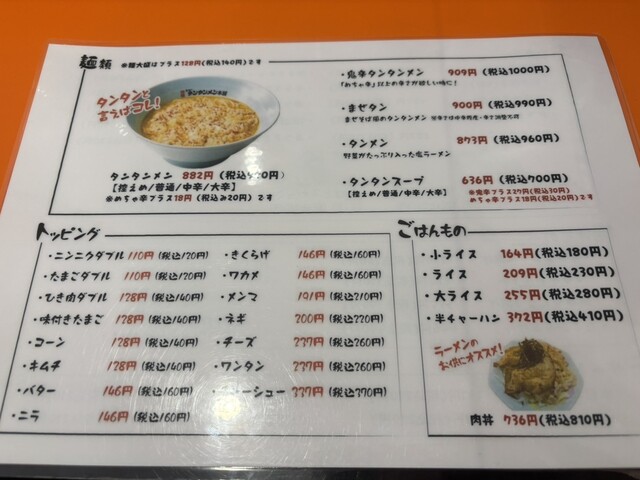 麺類 ※麺大盛はプラス128円(税込140円)です
タンタンと
言えばコレ!
タンタンメン 882円
【控えめ/普通/中辛/大辛】
※めちゃ辛プラス18円(税込み20円)です
・鬼辛タンタンメン 909円(税込1000円)
「めちゃ辛」以上の辛さが欲しい時に!
・まぜタン 900円(税込990円)
まぜそば風のタンタンメン
・タンメン 873円(税込960円)
野菜がたっぷり入った塩ラーメン
・タンタンスープ 636円(税込700円)
【控えめ/普通/中辛/大辛】
※鬼辛プラス27円(税込30円)
めちゃ辛プラス18円(税込20円)です
トッピング
・ニンニクダブル 110円(税込120円)
・たまごダブル 110円(税込120円)
・ひき肉ダブル 128円(税込140円)
・味付きたまご 128円(税込140円)
・コーン 128円(税込140円)
・キムチ 128円(税込140円)
・バター 146円(税込160円)
・ニラ 146円(税込160円)
・きくらげ 146円(税込160円)
・ワカメ 146円(税込160円)
・メンマ 191円(税込210円)
・ネギ 200円(税込220円)
・チーズ 237円(税込260円)
・ワンタン 237円(税込260円)
ーシュー 337円(税込370円)
ごはんもの
・小ライス 164円(税込180円)
・ライス 209円(税込230円)
・大ライス 255円(税込280円)
・半チャーハン 372円(税込410円)
ラーメンの
お供にオススメ!
肉丼 736円(税込810円)